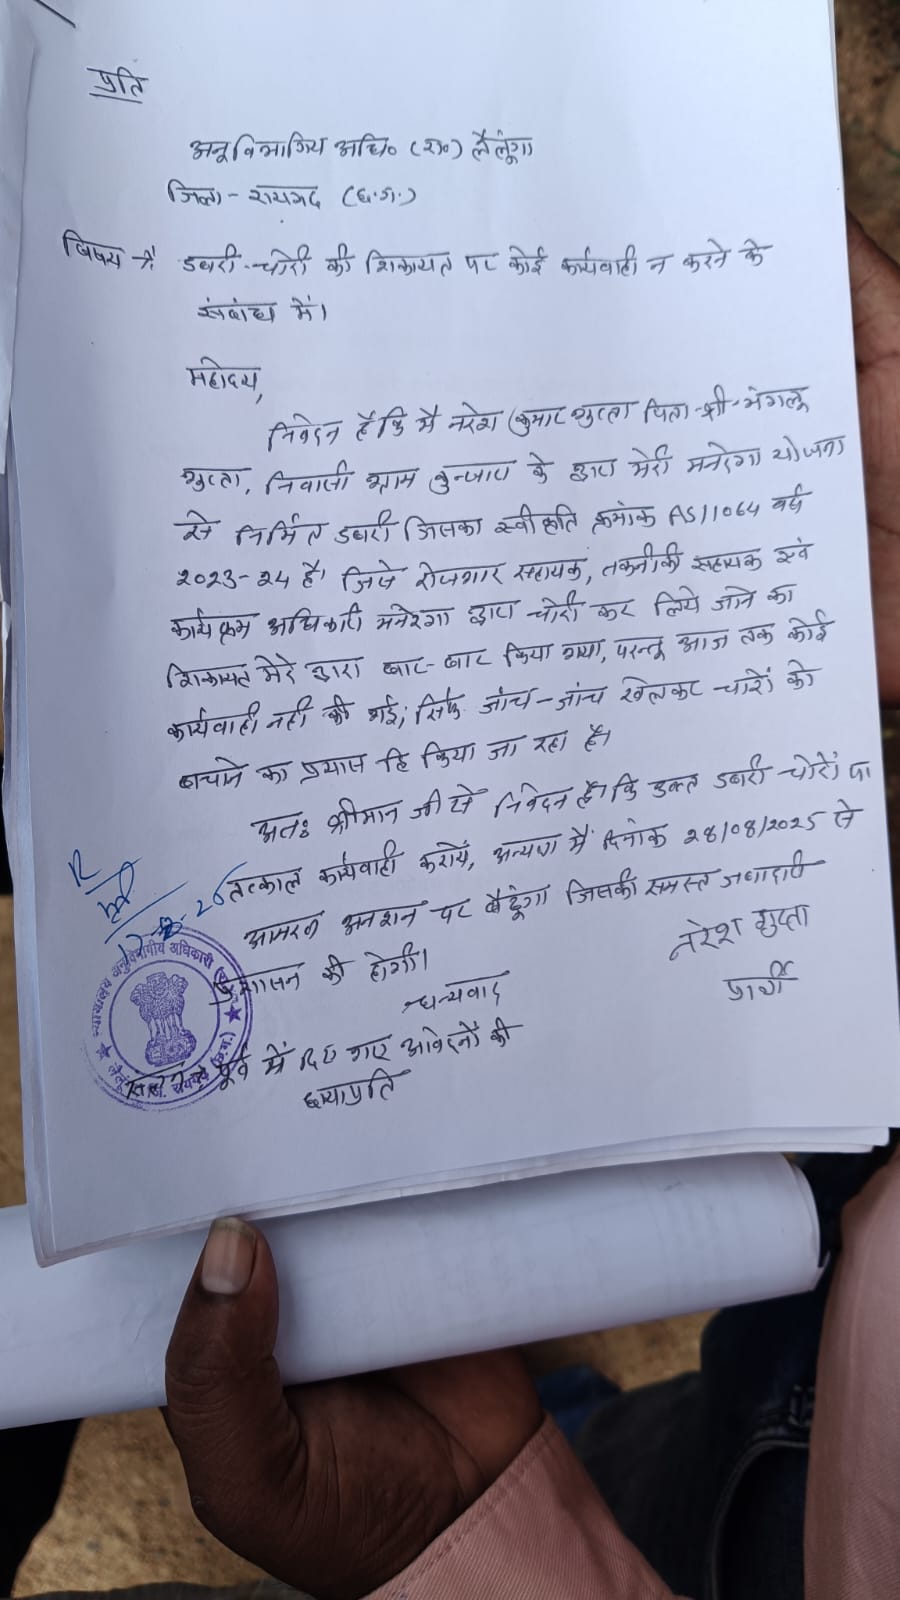 प्रति
अनुविभागिय अधि० (रा०) लैलूंगा
जिला - रायगढ (छ.ग.)
विषय :- डबरी-चोरी की शिकायत पर कोई कार्यवाही न करने के
संबंध में।
महोदय,
निवेदन है कि मै नरेश कुमार गुप्ता पिता-श्री-मंगलू
गुप्ता, निवासी ग्राम कुन्जारा के द्वारा मेरी मनरेगा योजना
से निर्मित डबरी जिसका स्वीकृति क्रमांक AS/1064 वर्ष
2023-24 है। जिसे रोजगार सहायक, तकनीकी सहायक एवं
कार्यक्रम अधिकारी मनरेगा द्वारा चोरी कर लिये जाने का
शिकायत मेरे द्वारा बार-बार किया गया, परन्तु आज तक कोई
कार्यवाही नही की गई, सिर्फ जांच-जांच खेलकर चोरों को
बचाने का प्रयास हि किया जा रहा है।
अतः श्रीमान जी से निवेदन है। कि उक्त डबरी चोरों पर
तत्काल कार्यवाही करायें, अन्यथा मैं दिनांक 28/08/2025 से
आमरण अनशन पर बैठूंगा जिसकी समस्त जवाबदारी
प्रशासन की होगी।
धन्यवाद
नरेश गुप्ता
प्रार्थी
पूर्व में दिए गए आवेदनों की
छायाप्रति
न्यायालय अनुविभागीय अधिकारी